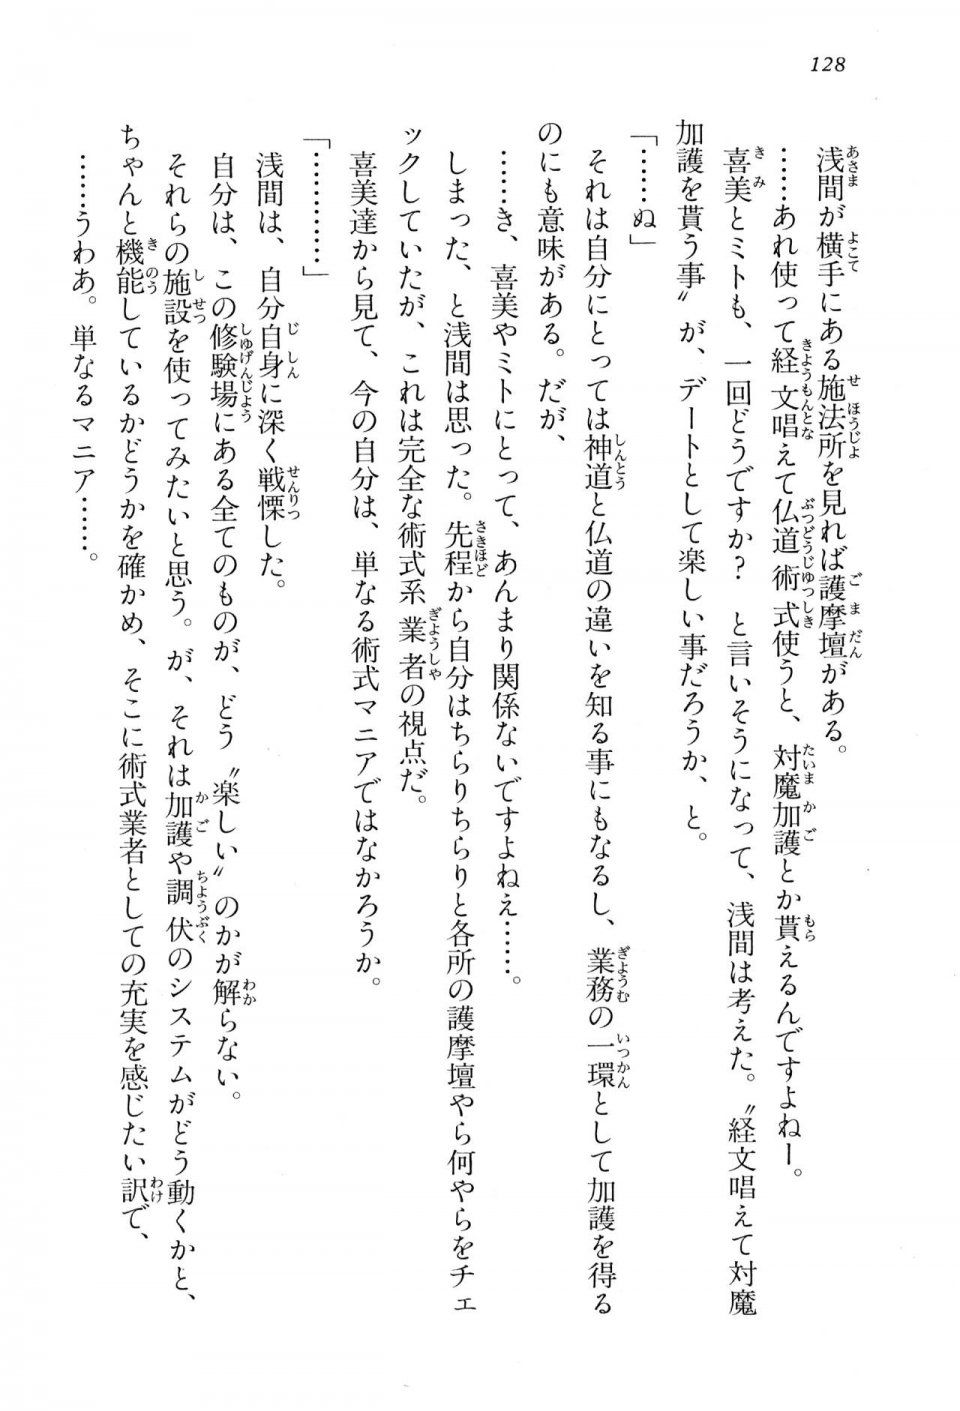 128
浅間が横手にある施法所を見れば護摩壇がある。
……あれ使って経文唱えて仏道術式使うと、対魔加護とか貰えるんですよねー。
喜美とミトも、一回どうですか？　と言いそうになって、浅間は考えた。〝経文唱えて対魔
加護を貰う事〟が、デートとして楽しい事だろうか、と。
「……ぬ」
それは自分にとっては神道と仏道の違いを知る事にもなるし、業務の一環として加護を得る
のにも意味がある。だが、
……き、喜美やミトにとって、あんまり関係ないですよねえ……。
しまった、と浅間は思った。先程から自分はちらりちらりと各所の護摩壇やら何やらをチェ
ックしていたが、これは完全な術式系業者の視点だ。
喜美達から見て、今の自分は、単なる術式マニアではなかろうか。
「…………」
浅間は、自分自身に深く戦慄した。
自分は、この修験場にある全てのものが、どう〝楽しい〟のかが解らない。
それらの施設を使ってみたいと思う。が、それは加護や調伏のシステムがどう動くかと、
ちゃんと機能しているかどうかを確かめ、そこに術式業者としての充実を感じたい訳で、
……うわあ。単なるマニア……。